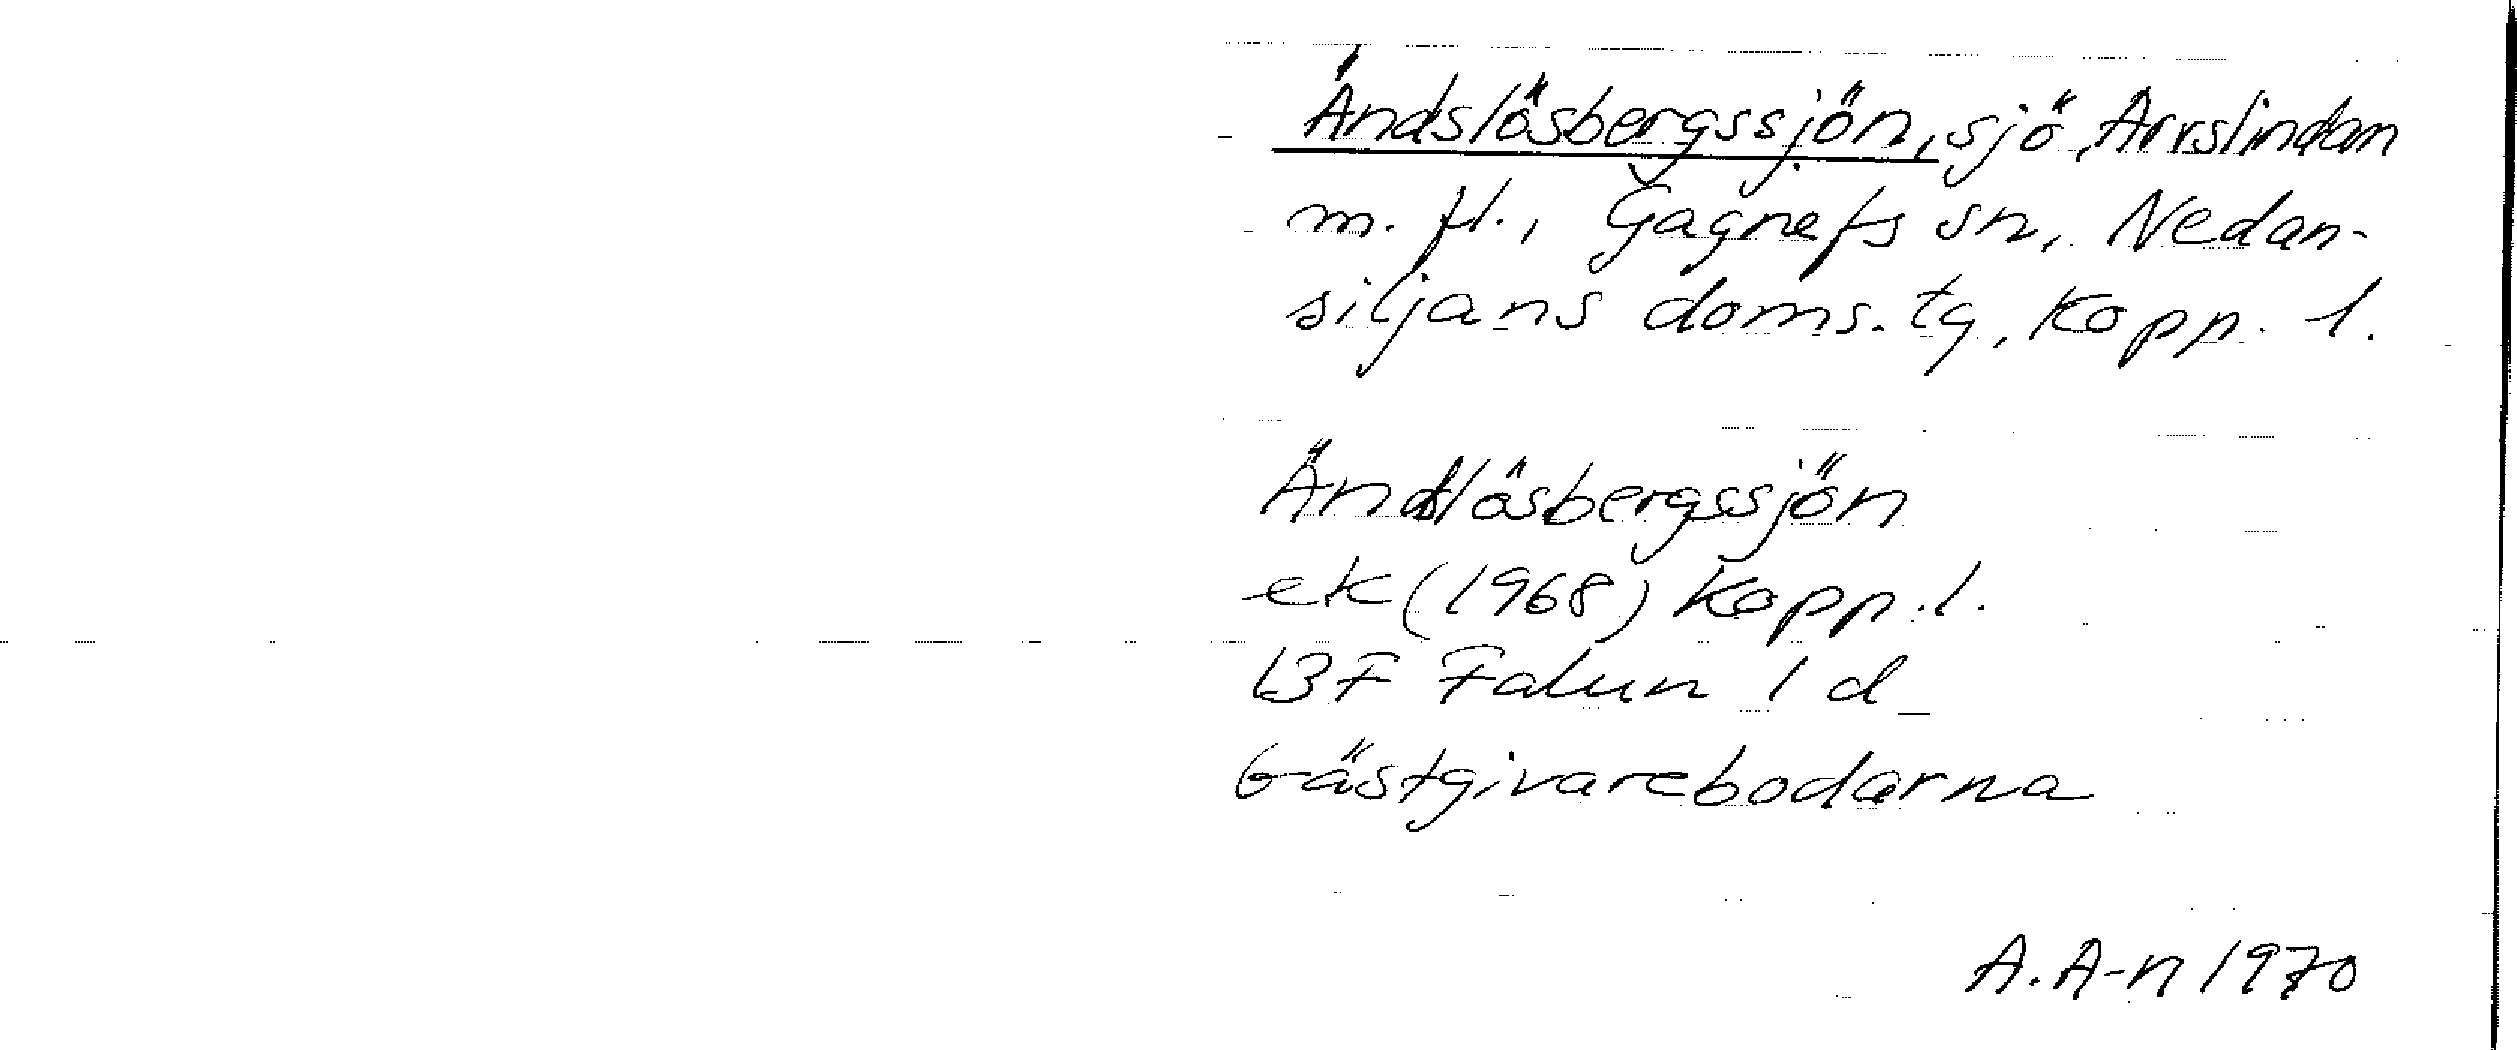 Ändslösbergssjön, sjö, Arvslindan
m. fl., Gagnefs sn, Nedan-
siljans doms. tg, Kopp. l.
Ändlösbergssjön
ek (1968) Kopp. l.
13F Falun 1 d
Gästgivarebodarna
A. A-n 1970